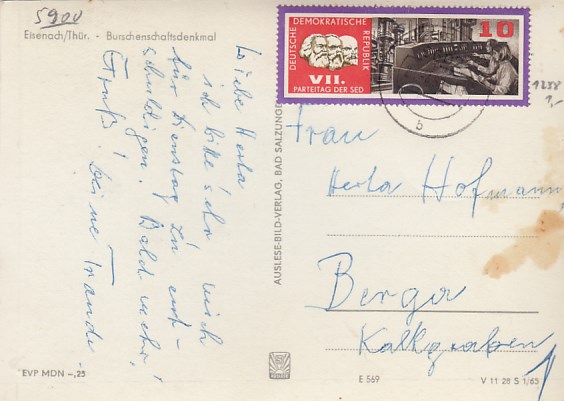 5900
Eisenach/Thür. - Burschenschaftsdenkmal
Liebe Herta
ich bitte sehr mich
für Dienstag zu ent-
schuldigen. Bald mehr!
Gruß! Deine Traude
DEUTSCHE DEMOKRATISCHE REPUBLIK
VII.
PARTEITAG DER SED
10
b
1258
1,-
Frau
Herta Hofmann
Berga
Kalkgraben
1
AUSLESE-BILD-VERLAG, BAD SALZUNGEN
EVP MDN -,25
E 569
V 11 28 S 1/65